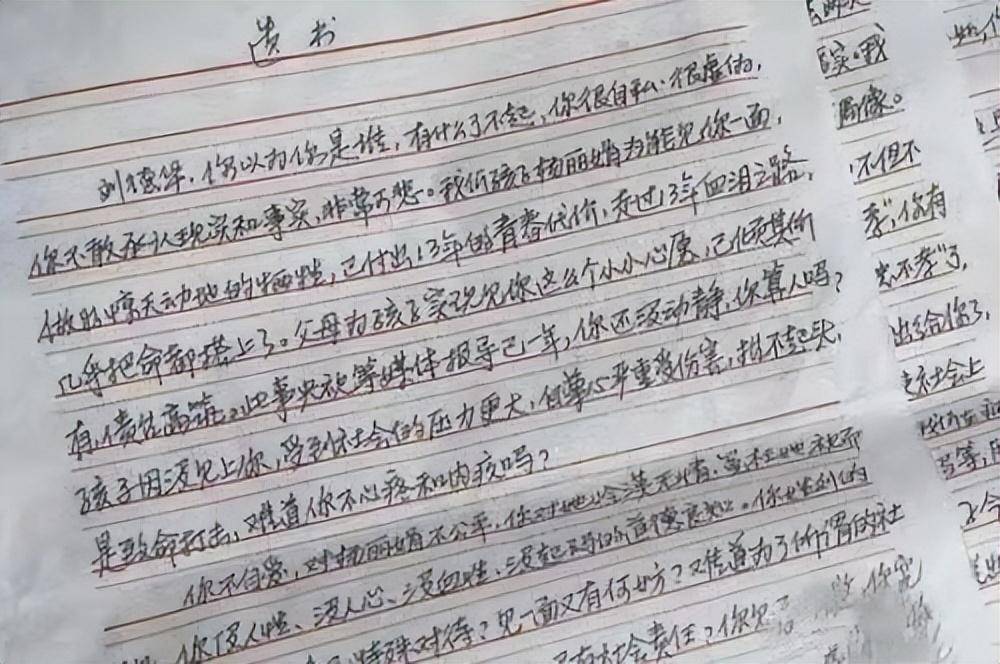 遗书
刘德华，你以为你是谁，有什么了不起，你很自私、很虚伪，
你不敢承认现实和事实，非常可悲。我们孩子杨丽娟为能见你一面，
做出惊天动地的牺牲，已付出13年的青春代价，走过13年血泪之路，
几乎把命都搭上了。父母为孩子实现见你这么个小小心愿，已倾其所
有，债台高筑。此事央视等媒体报导已一年，你还没动静，你算人吗？
孩子因没见上你，受到社会的压力更大，自尊心严重受伤害，抬不起头，
是致命打击，难道你不心疼和内疚吗？
你不自爱，对杨丽娟不公平，你对她
你没人性、没人心、没血性、没起码的道德良知。你
特殊对待？见一面又有何妨？难道为了所谓的社
社会责任？你见
实。我
偶像。
不但不
孝，你有
不孝了，
出给你了，
社会上
等，